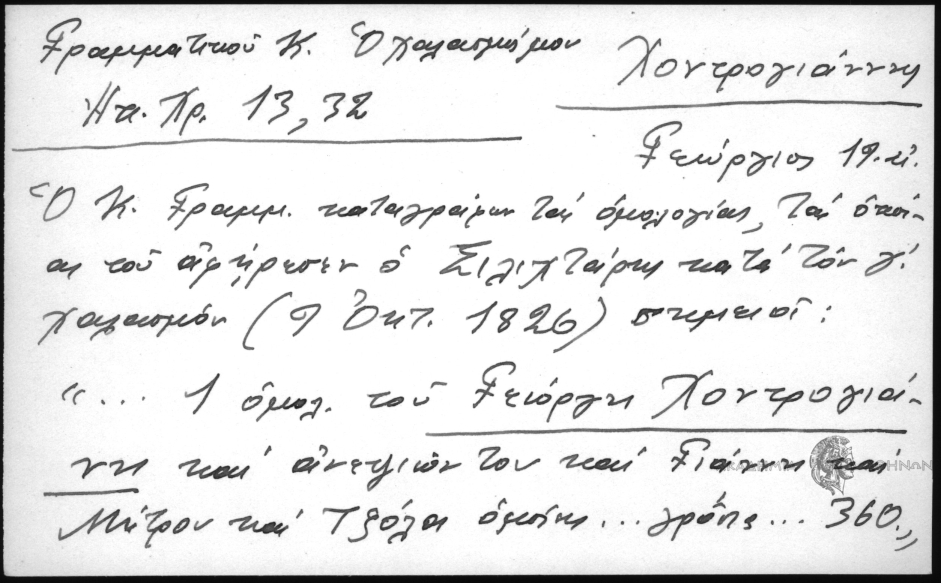 Γραμματικοῦ Κ. Ὁ χαλασμός μου
Ηπ. Χρ. 13, 32
Χοντρογιάννης
Γεώργιος 19. αἰ.
Ὁ Κ. Γραμμ. καταγράφων τάς ὁμολογίας, τάς ὁποί-
ας τοῦ ἀφῄρεσεν ὁ Σιλιχτάρης κατά τόν γ΄
χαλασμόν (9 Ὀκτ. 1826) σημειοῖ:
"... 1 ὁμολ. τοῦ Γεώργη Χοντρογιά-
ννη καί ἀνεψιῶν του καί Γιάννη καί
Μήτρου καί Τζόλα ὁμοίως... γρόσ.... 360."